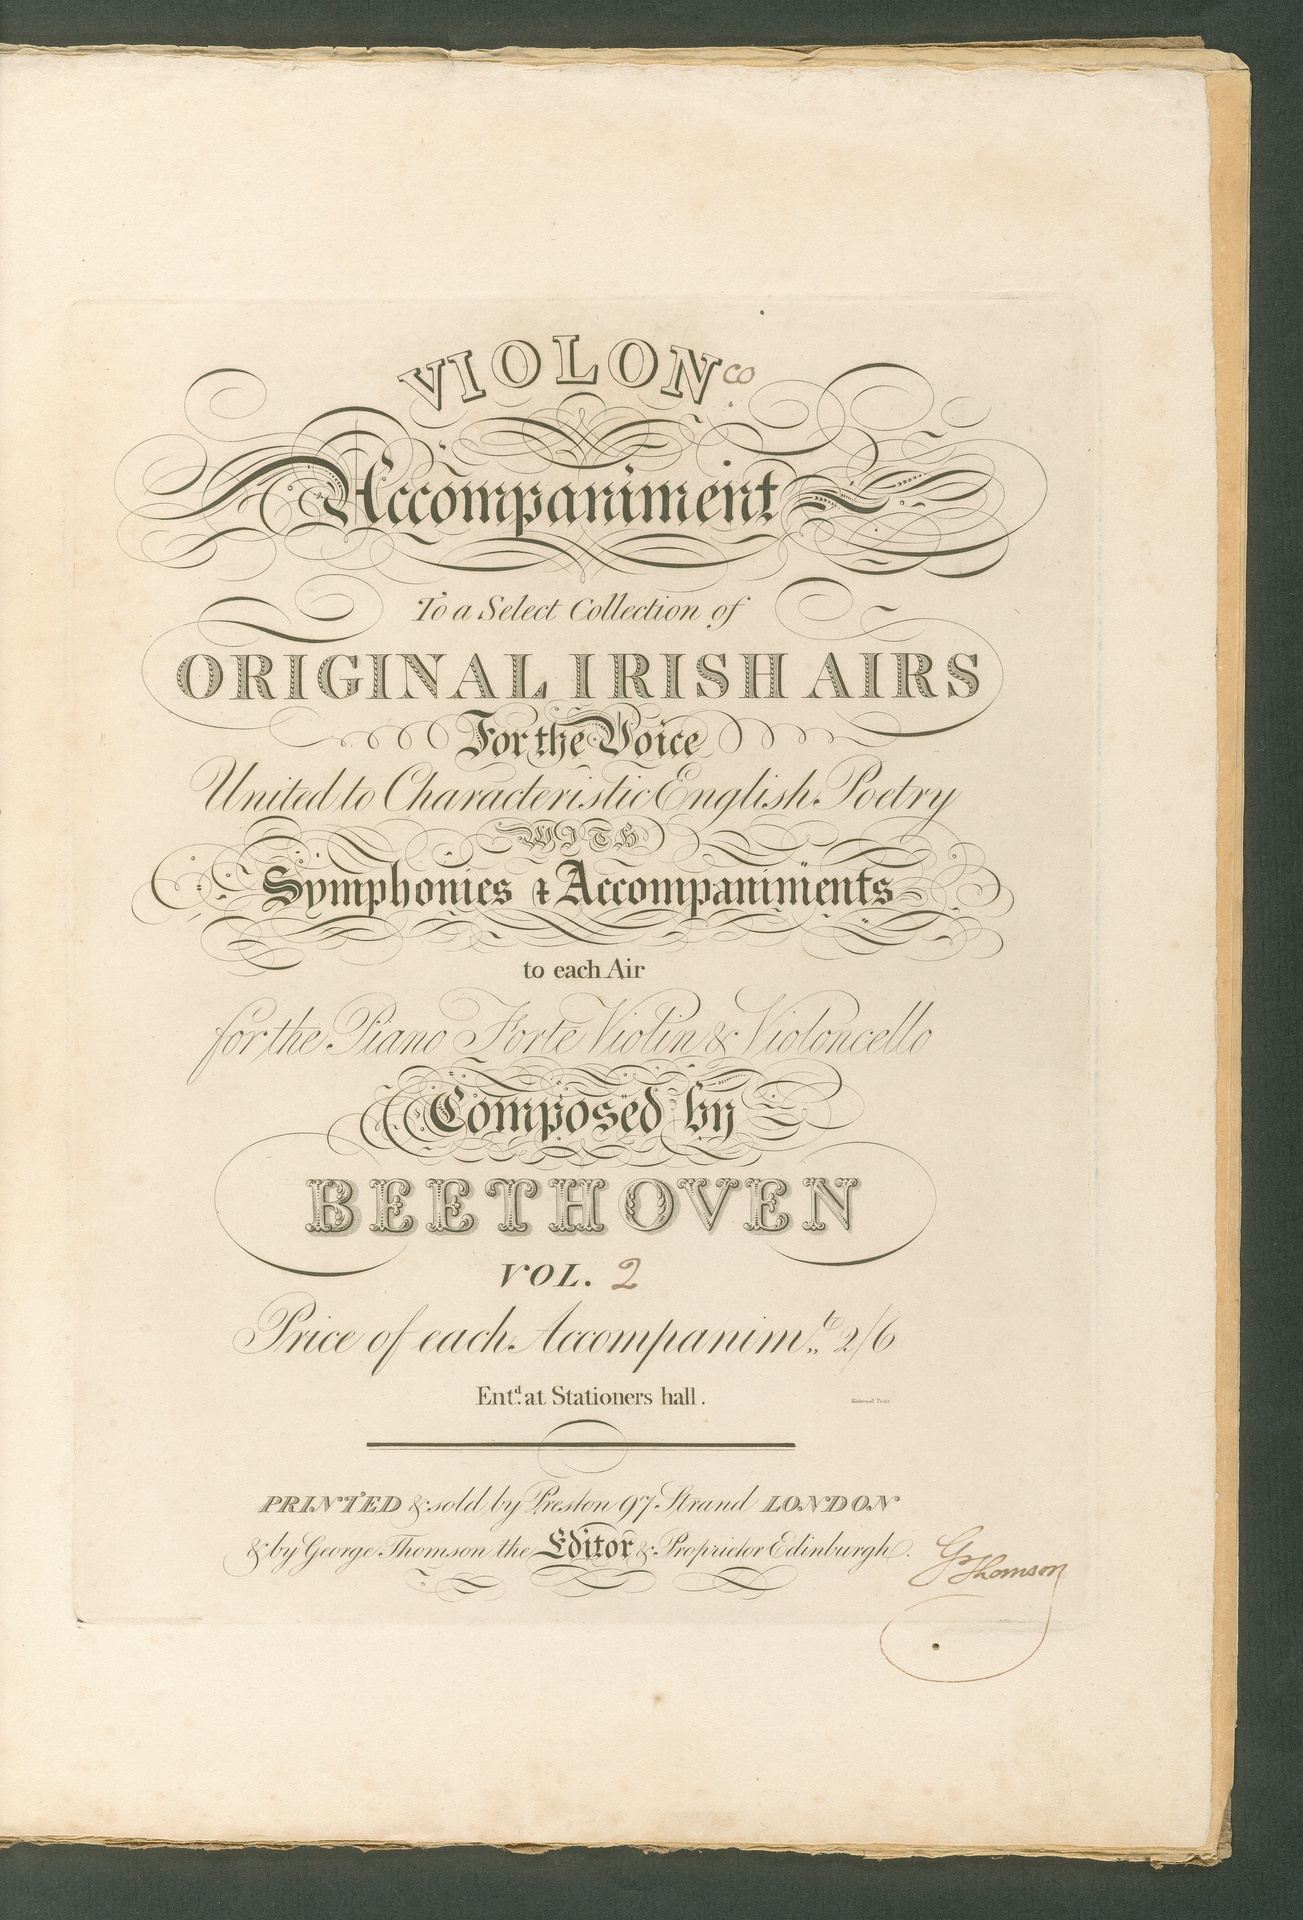 VIOLON co.
Accompaniment
To a Select Collection of
ORIGINAL IRISH AIRS
For the Voice
United to Characteristic English Poetry
WITH
Symphonies & Accompaniments
to each Air
for the Piano Forte Violin & Violoncello
Composed by
BEETHOVEN
VOL. 2
Price of each Accompanim.t 2/6
Ent.d at Stationers hall.
PRINTED & sold by Preston 97 Strand LONDON
& by George Thomson the Editor & Proprietor Edinburgh.
G Thomson